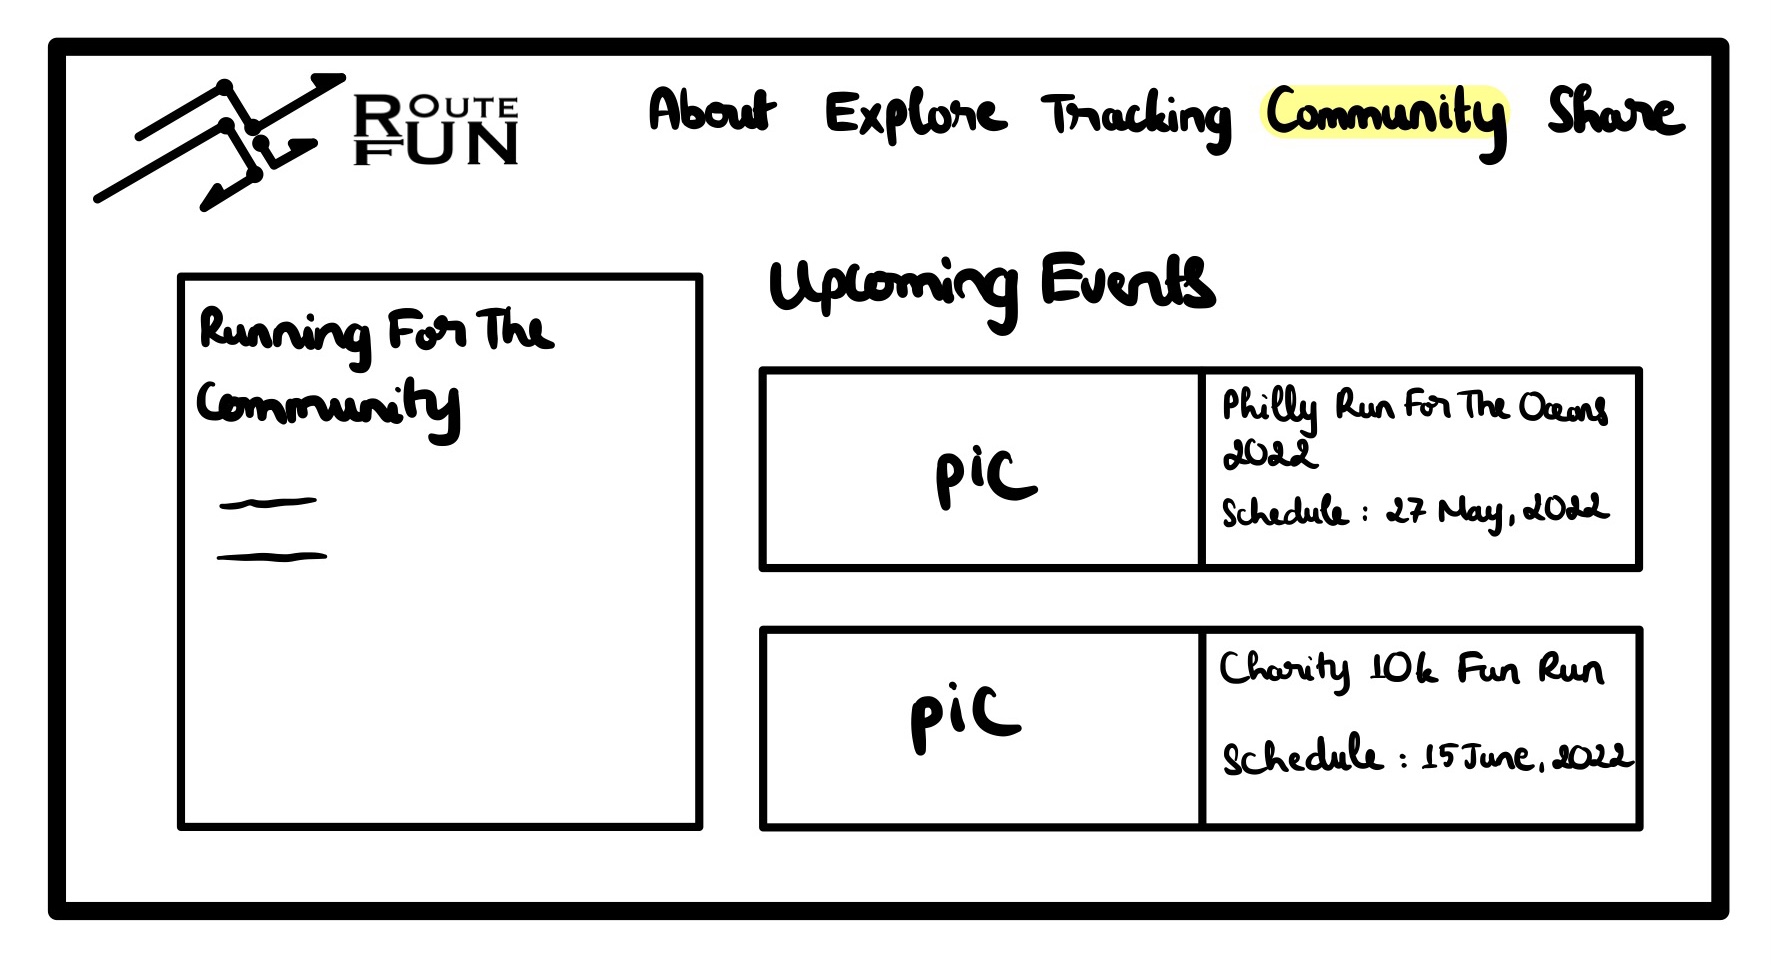 ROUTE
FUN
About Explore Tracking Community Share
Running For The
Community
Upcoming Events
pic
Philly Run For The Oceans
2022
Schedule : 27 May, 2022
pic
Charity 10k Fun Run
Schedule : 15 June, 2022